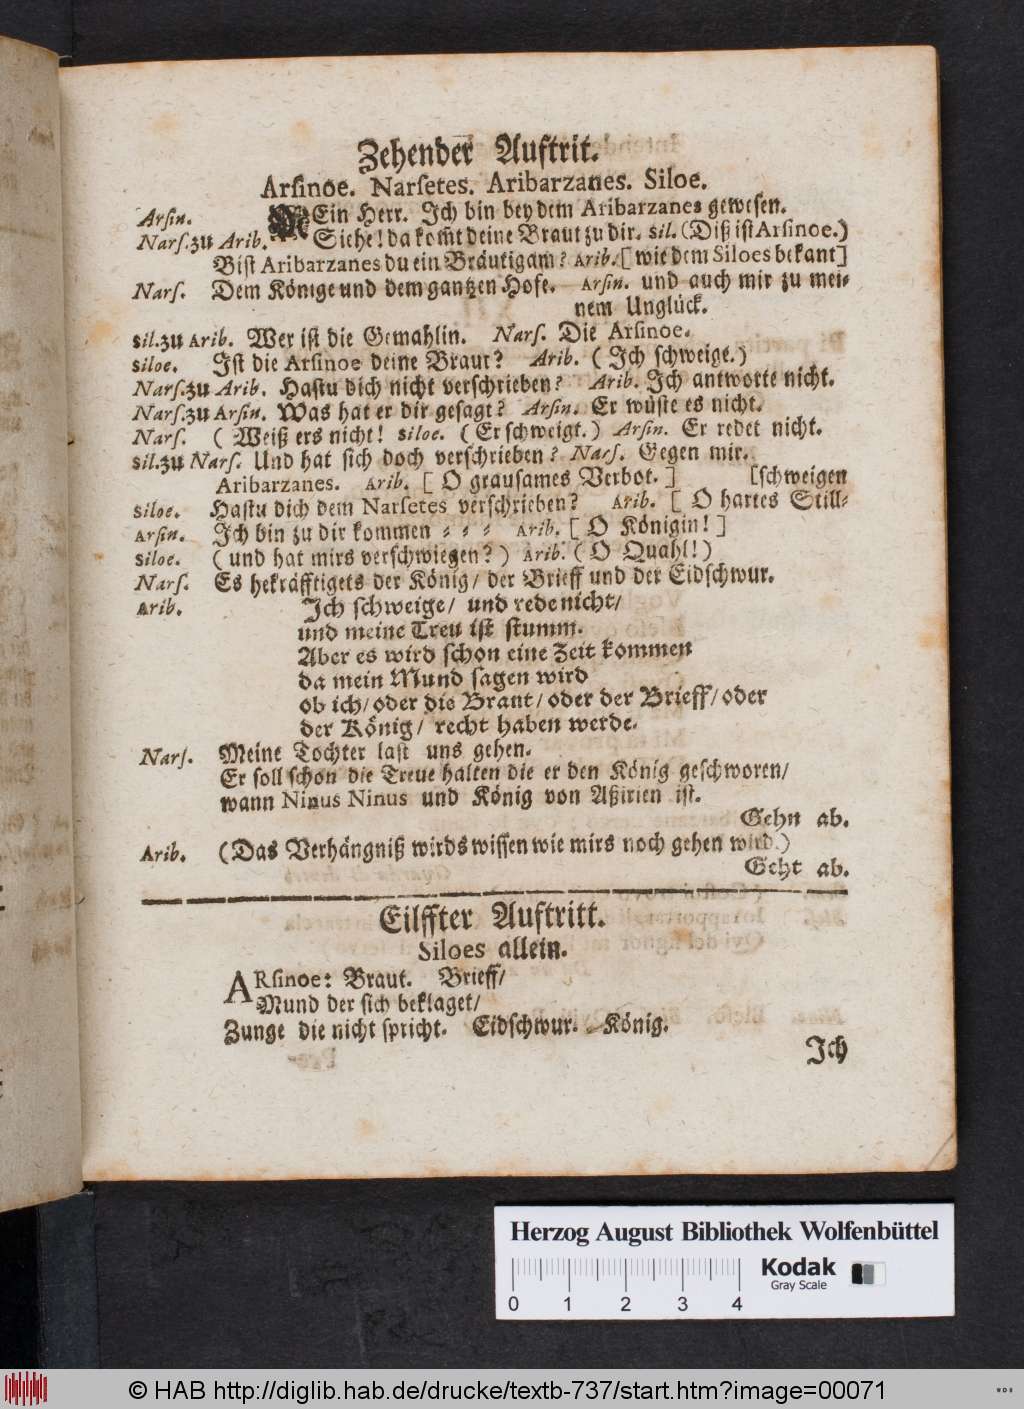 Zehender Auftrit.
Arſinoe. Narſetes. Aribarzanes. Siloe.
Arſin. MEin Herr. Ich bin bey dem Aribarzanes geweſen.
Narſ. zu Arib. Siehe! da kom̃t deine Braut zu dir. Sil. (Diß iſt Arſinoe.)
Biſt Aribarzanes du ein Bräutigam? Arib. [wie dem Siloes bekant]
Narſ. Dem Könige und dem gantzen Hofe. Arſin. und auch mir zu mei-
nem Unglück.
Sil. zu Arib. Wer iſt die Gemahlin. Narſ. Die Arſinoe.
Siloe. Iſt die Arſinoe deine Braut? Arib. (Ich ſchweige.)
Narſ. zu Arib. Haſtu dich nicht verſchrieben? Arib. Ich antworte nicht.
Narſ. zu Arſin. Was hat er dir geſagt? Arſin. Er wüſte es nicht.
Narſ. (Weiß ers nicht! Siloe. (Er ſchweigt.) Arſin. Er redet nicht.
Sil. zu Narſ. Und hat ſich doch verſchrieben? Narſ. Gegen mir.
Aribarzanes. Arib. [O grauſames Verbot.] [ſchweigen
Siloe. Haſtu dich dem Narſetes verſchrieben? Arib. [O hartes Still-
Arſin. Ich bin zu dir kommen - - - Arib. [O Königin!]
Siloe. (und hat mirs verſchwiegen?) Arib. (O Quahl!)
Narſ. Es bekräfftigets der König/ der Brieff und der Eidſchwur.
Arib. Ich ſchweige/ und rede nicht/
und meine Treu iſt ſtumm.
Aber es wird ſchon eine Zeit kommen
da mein Mund ſagen wird
ob ich/ oder die Braut/ oder der Brieff/ oder
der König/ recht haben werde.
Narſ. Meine Tochter laſt uns gehen.
Er ſoll ſchon die Treue halten die er den König geſchworen/
wann Ninus Ninus und König von Aßirien iſt.
Gehn ab.
Arib. (Das Verhängniß wirds wiſſen wie mirs noch gehen wird.)
Geht ab.
Eilffter Auftritt.
Siloes allein.
ARſinoe: Braut. Brieff/
Mund der ſich beklaget/
Zunge die nicht ſpricht. Eidſchwur. König.
Ich
Herzog August Bibliothek Wolfenbüttel
Kodak
Gray Scale
0 1 2 3 4
© HAB http://diglib.hab.de/drucke/textb-737/start.htm?image=00071